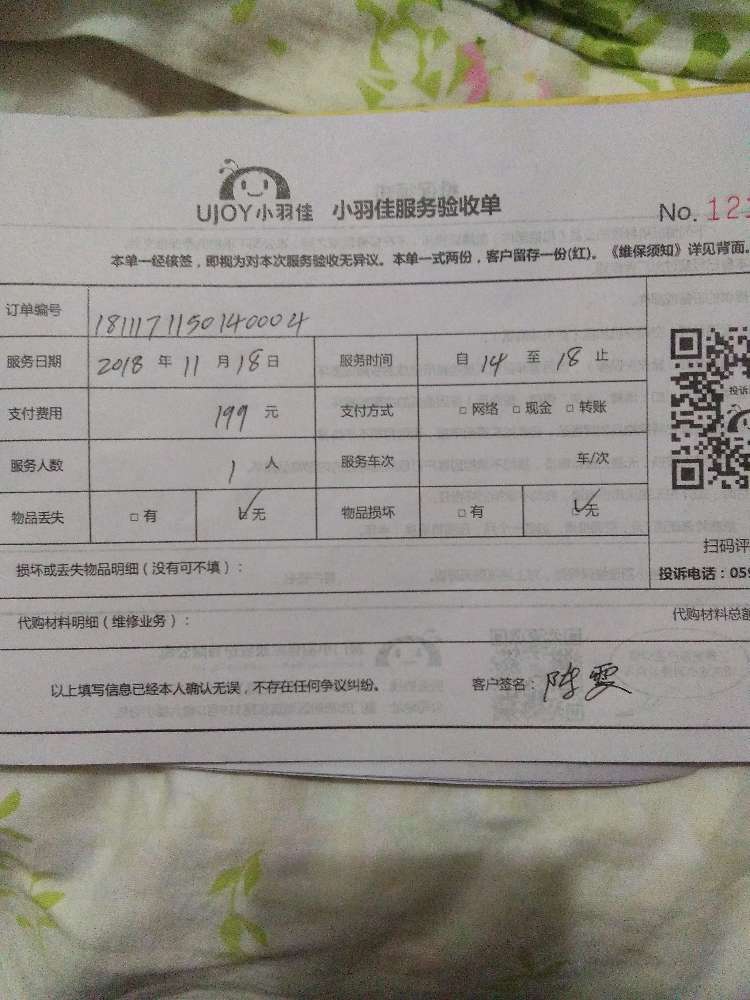 UJOY小羽佳 小羽佳服务验收单
No. 12
本单一经核签，即视为对本次服务验收无异议。本单一式两份，客户留存一份(红)。《维保须知》详见背面。
订单编号 1811171150140004
服务日期 2018 年 11 月 18 日 服务时间 自 14 至 18 止
支付费用 199 元 支付方式 □ 网络 □ 现金 □ 转账
服务人数 1 人 服务车次 车/次
物品丢失 □ 有 ☑ 无 物品损坏 □ 有 ☑ 无
扫码评
损坏或丢失物品明细（没有可不填）：
投诉电话：059
代购材料明细（维修业务）：
代购材料总额
以上填写信息已经本人确认无误，不存在任何争议纠纷。 客户签名：陈雯